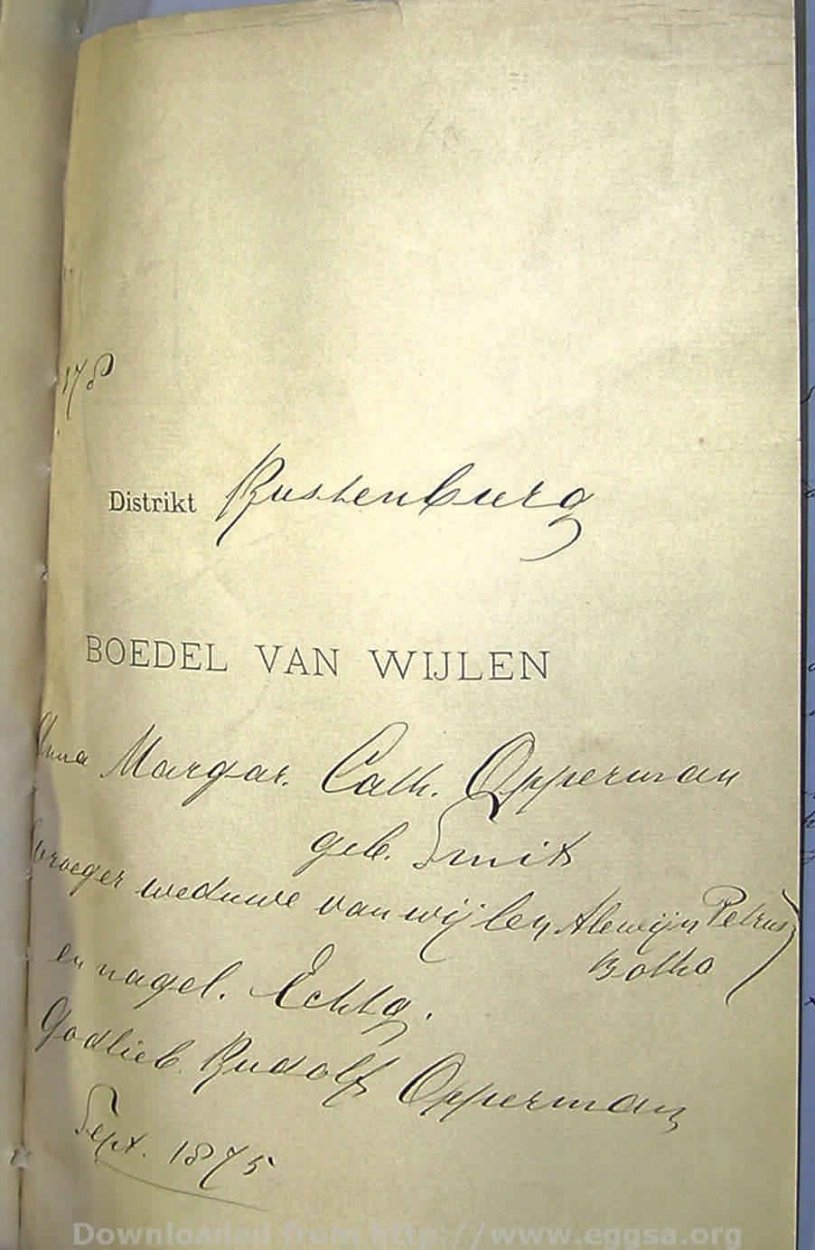 178
Distrikt Rustenburg
BOEDEL VAN WIJLEN
Anna Margar. Cath. Opperman
geb. Smit
(vroeger weduwe van wijlen Alewijn Petrus
Botha)
en nagel. Echtg.
Godlieb Rudolf Opperman
Sept. 1875
Downloaded from http://www.eggsa.org